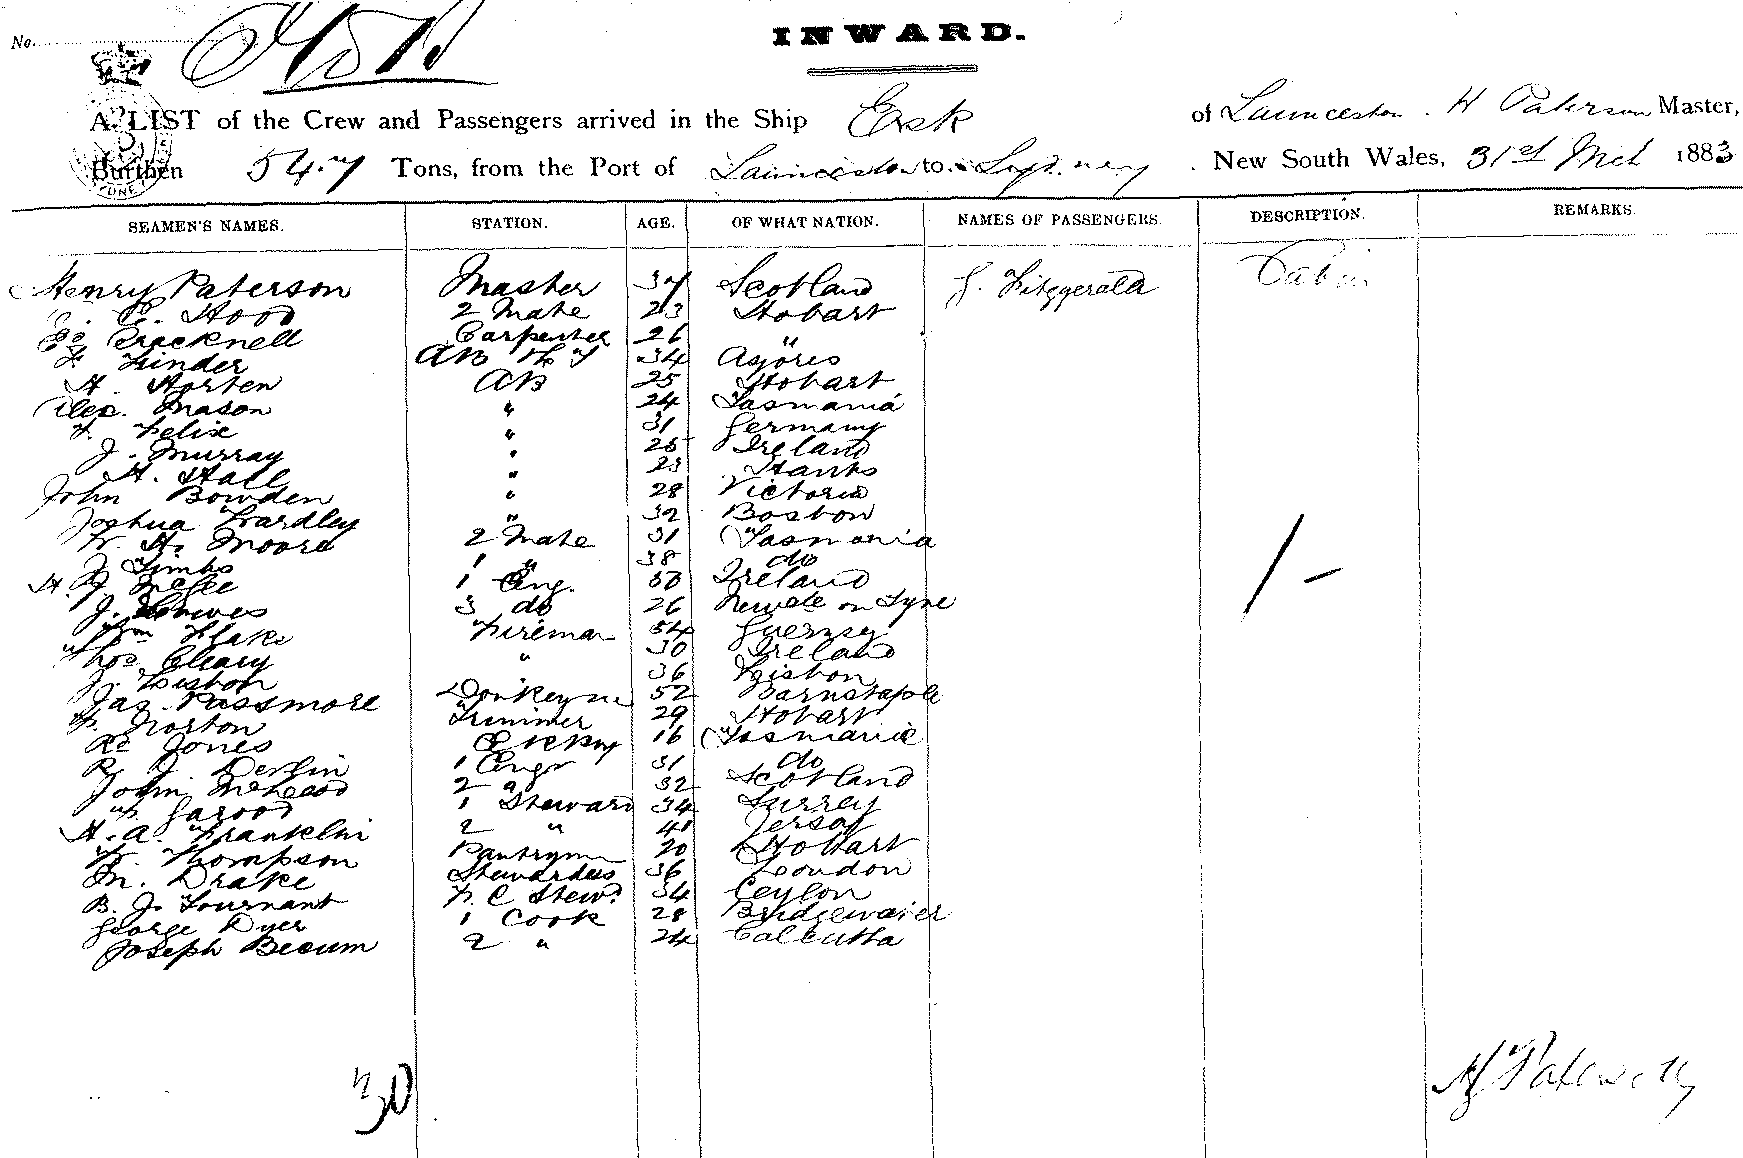 No.
INWARD.
A LIST of the Crew and Passengers arrived in the Ship Esk of Launceston. H Paterson Master,
Burthen Tons, from the Port of Launceston to Sydney. New South Wales, 31st Mch 1883
SEAMEN'S NAMES. STATION. AGE. OF WHAT NATION. NAMES OF PASSENGERS. DESCRIPTION. REMARKS.
Henry Paterson Master 37 Scotland J. Fitzgerald Cabin
Hood 2 Mate 23 Hobart
Cracknell Carpenter 26 "
Linder AB 34 Açores
H. Horten AB 25 Hobart
Alex. Mason " 24 Tasmania
F. Felix " 31 Germany
J. Murray " 25 Ireland
H. Hall " 23 Hants
John Bowden " 28 Victoria
Joshua Yardley " 32 Boston
W. H. Moore 2 Mate 31 Tasmania
J. Timbs 1 " 38 do
H. J. McGee 1 Eng. 30 Ireland
J. 3 do 26 Newcle on Tyne
Wm Flake Fireman 54 Guernsey
Thos. Cleary " 30 Ireland
J. Lisbon 36 Lisbon
Jas. Passmore Donkeyman 52 Barnstaple
Norton Trimmer 29 Hobart
Rd Jones 16 Tasmania
R. J. Devlin 1 Engr 31 do
John McLeod 2 32 Scotland
W. Garood 1 Steward 34 Surrey
H. A. Franklin 2 " 41 Jersey
W. Thompson Pantryman 20 Hobart
M. Drake Stewardess 36 London
B. J. Tournant F. C Stewd 34 Ceylon
George Dyer 1 Cook 28 Bridgewater
Joseph Becum 2 " 24 Calcutta
1/-
30
H Paterson